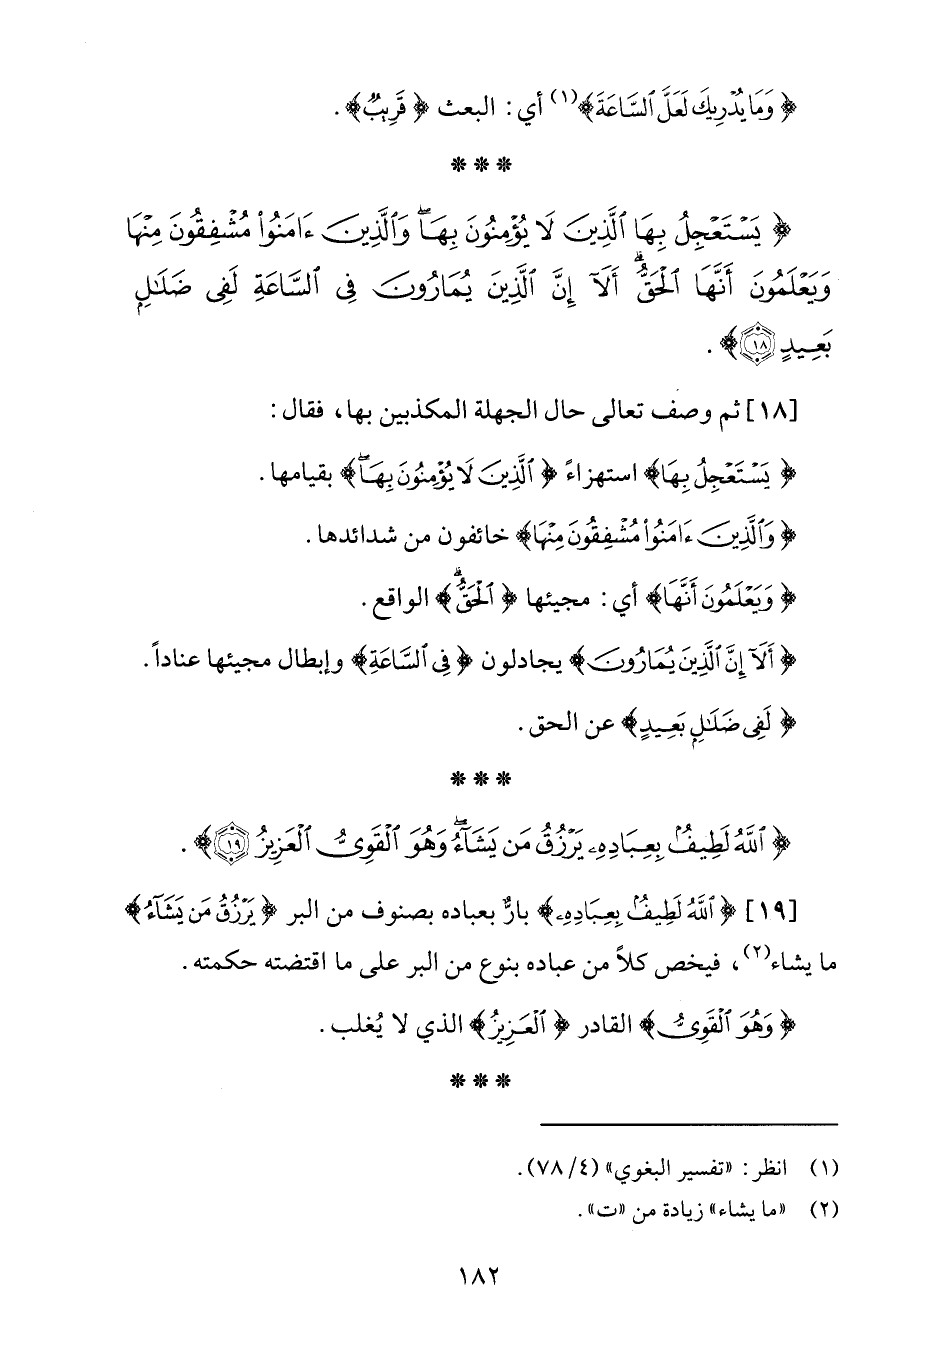 ﴿ وَمَا يُدْرِيكَ لَعَلَّ ٱلسَّاعَةَ﴾(١) أي: البعث ﴿ قَرِيبٌ﴾.
***
﴿ يَسْتَعْجِلُ بِهَا ٱلَّذِينَ لَا يُؤْمِنُونَ بِهَاۖ وَٱلَّذِينَ ءَامَنُوا۟ مُشْفِقُونَ مِنْهَا
وَيَعْلَمُونَ أَنَّهَا ٱلْحَقُّۗ أَلَآ إِنَّ ٱلَّذِينَ يُمَارُونَ فِى ٱلسَّاعَةِ لَفِى ضَلَـٰلٍۭ
بَعِيدٍ ١٨﴾.
[١٨] ثم وصف تعالى حال الجهلة المكذبين بها، فقال:
﴿ يَسْتَعْجِلُ بِهَا﴾ استهزاءً ﴿ ٱلَّذِينَ لَا يُؤْمِنُونَ بِهَاۖ﴾ بقيامها.
﴿ وَٱلَّذِينَ ءَامَنُوا۟ مُشْفِقُونَ مِنْهَا﴾ خائفون من شدائدها.
﴿ وَيَعْلَمُونَ أَنَّهَا﴾ أي: مجيئها ﴿ ٱلْحَقُّۗ﴾ الواقع.
﴿ أَلَآ إِنَّ ٱلَّذِينَ يُمَارُونَ﴾ يجادلون ﴿ فِى ٱلسَّاعَةِ﴾ وإبطال مجيئها عناداً.
﴿ لَفِى ضَلَـٰلٍۭ بَعِيدٍ﴾ عن الحق.
***
﴿ ٱللَّهُ لَطِيفٌۢ بِعِبَادِهِۦ يَرْزُقُ مَن يَشَآءُۖ وَهُوَ ٱلْقَوِىُّ ٱلْعَزِيزُ ١٩﴾.
[١٩] ﴿ ٱللَّهُ لَطِيفٌۢ بِعِبَادِهِۦ﴾ بارٌّ بعباده بصنوف من البر ﴿ يَرْزُقُ مَن يَشَآءُ﴾
ما يشاء(٢)، فيخص كلاً من عباده بنوع من البر على ما اقتضته حكمته.
﴿ وَهُوَ ٱلْقَوِىُّ﴾ القادر ﴿ ٱلْعَزِيزُ﴾ الذي لا يُغلب.
***
(١) انظر: «تفسير البغوي» (٤/ ٧٨).
(٢) «ما يشاء» زيادة من «ت».
١٨٢